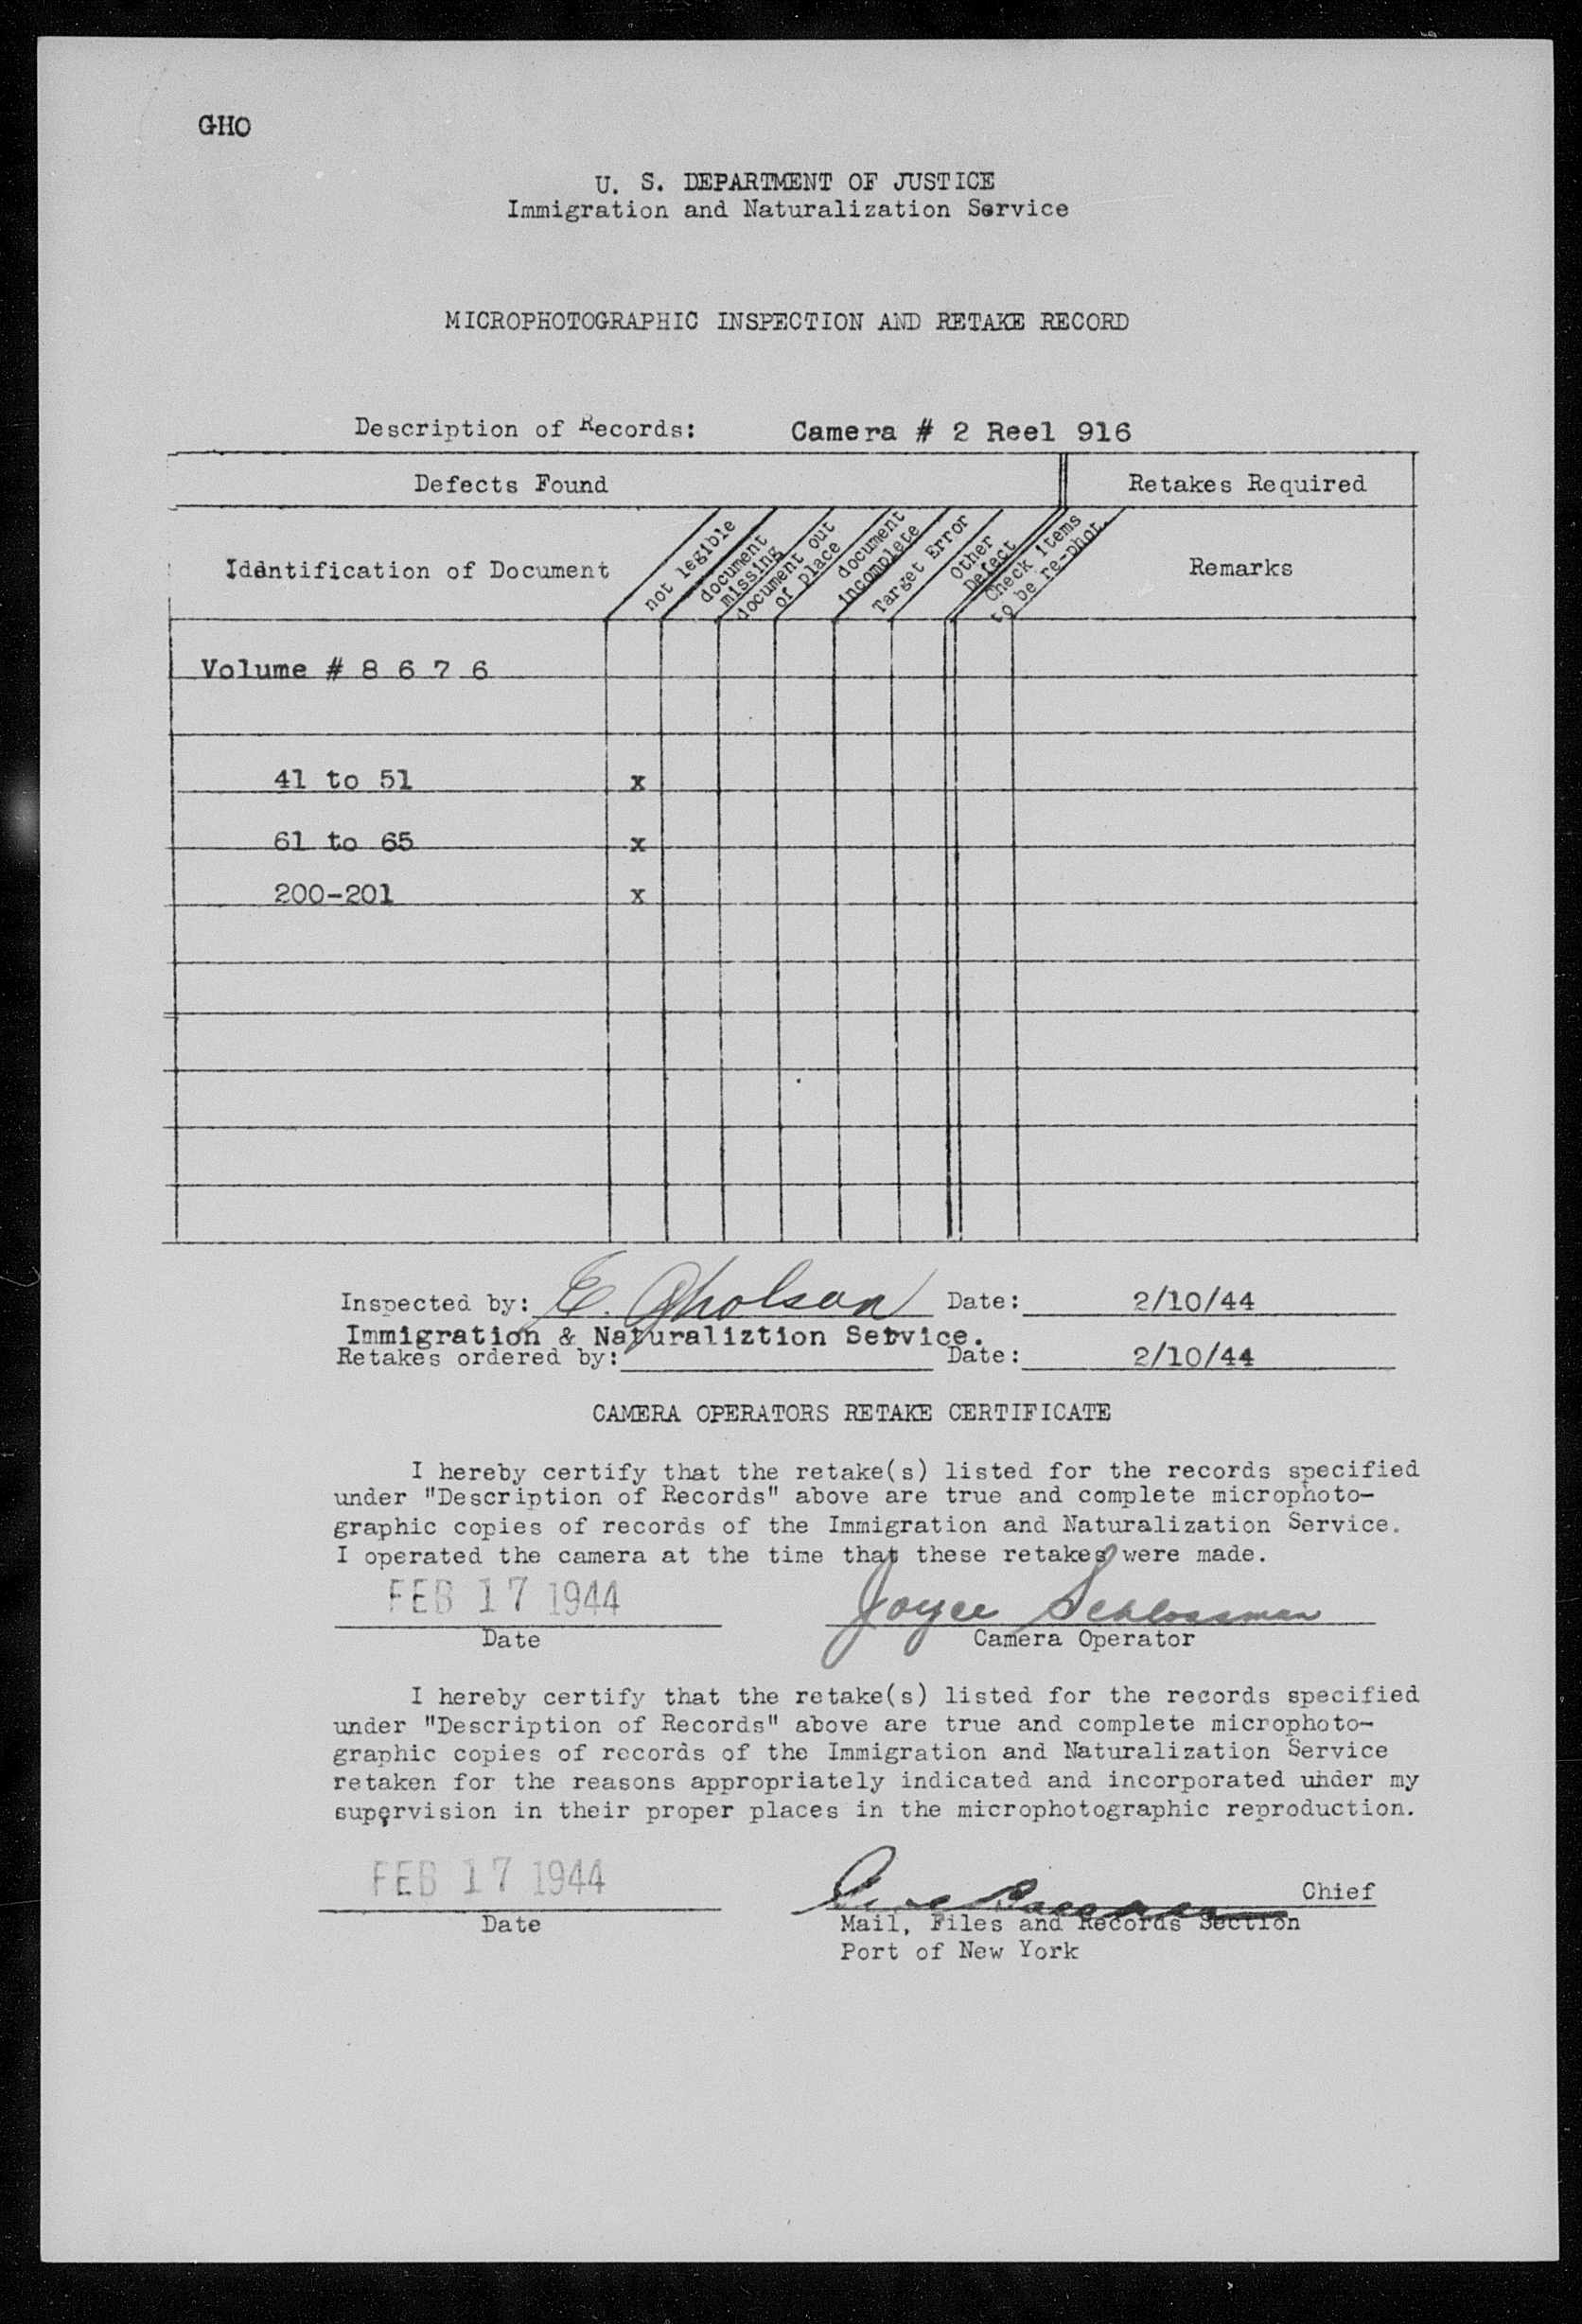 GHO
U. S. DEPARTMENT OF JUSTICE
Immigration and Naturalization Service
MICROPHOTOGRAPHIC INSPECTION AND RETAKE RECORD
Description of Records: Camera # 2 Reel 916
Defects Found
Retakes Required
Identification of Document
not legible
document missing
document out of place
document incomplete
Target Error
Other Defect
Check items to be re-phot.
Remarks
Volume # 8 6 7 6
41 to 51 x
61 to 65 x
200-201 x
Inspected by: E. Gholson Date: 2/10/44
Immigration & Naturaliztion Setvice.
Retakes ordered by: Date: 2/10/44
CAMERA OPERATORS RETAKE CERTIFICATE
I hereby certify that the retake(s) listed for the records specified
under "Description of Records" above are true and complete microphoto-
graphic copies of records of the Immigration and Naturalization Service.
I operated the camera at the time that these retakes were made.
FEB 17 1944 Joyce Schlossman
Date Camera Operator
I hereby certify that the retake(s) listed for the records specified
under "Description of Records" above are true and complete microphoto-
graphic copies of records of the Immigration and Naturalization Service
retaken for the reasons appropriately indicated and incorporated under my
supervision in their proper places in the microphotographic reproduction.
FEB 17 1944 Chief
Date Mail, Files and Records Section
Port of New York